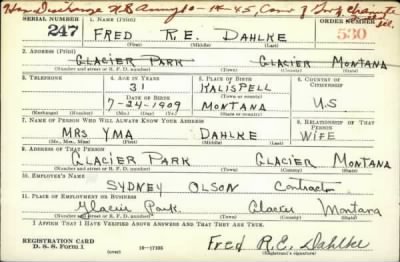 Hon Discharge US Army 10-14-45, Conv
SERIAL NUMBER 1. Name (Print) ORDER NUMBER
247 FRED R.E. DAHLKE 530
(First) (Middle) (Last)
2. Address (Print)
GLACIER PARK GLACIER MONTANA
(Number and street or R. F. D. number) (Town) (County) (State)
3. Telephone 4. Age in Years 5. Place of Birth 6. Country of Citizenship
31 KALISPELL
Date of Birth (Town or county)
7-24-1909 MONTANA U S
(Exchange) (Number) (Mo.) (Day) (Yr.) (State or country)
7. Name of Person Who Will Always Know Your Address 8. Relationship of That Person
MRS YMA DAHLKE WIFE
(Mr., Mrs., Miss) (First) (Middle) (Last)
9. Address of That Person
GLACIER PARK GLACIER MONTANA
(Number and street or R. F. D. number) (Town) (County) (State)
10. Employer's Name
SYDNEY OLSON Contractor
11. Place of Employment or Business
Glacier Park Glacier Montana
(Number and street or R. F. D. number) (Town) (County) (State)
I Affirm That I Have Verified Above Answers and That They Are True.
REGISTRATION CARD
D. S. S. Form 1 (over) 16-17105 Fred R.E. Dahlke
(Registrant's signature)